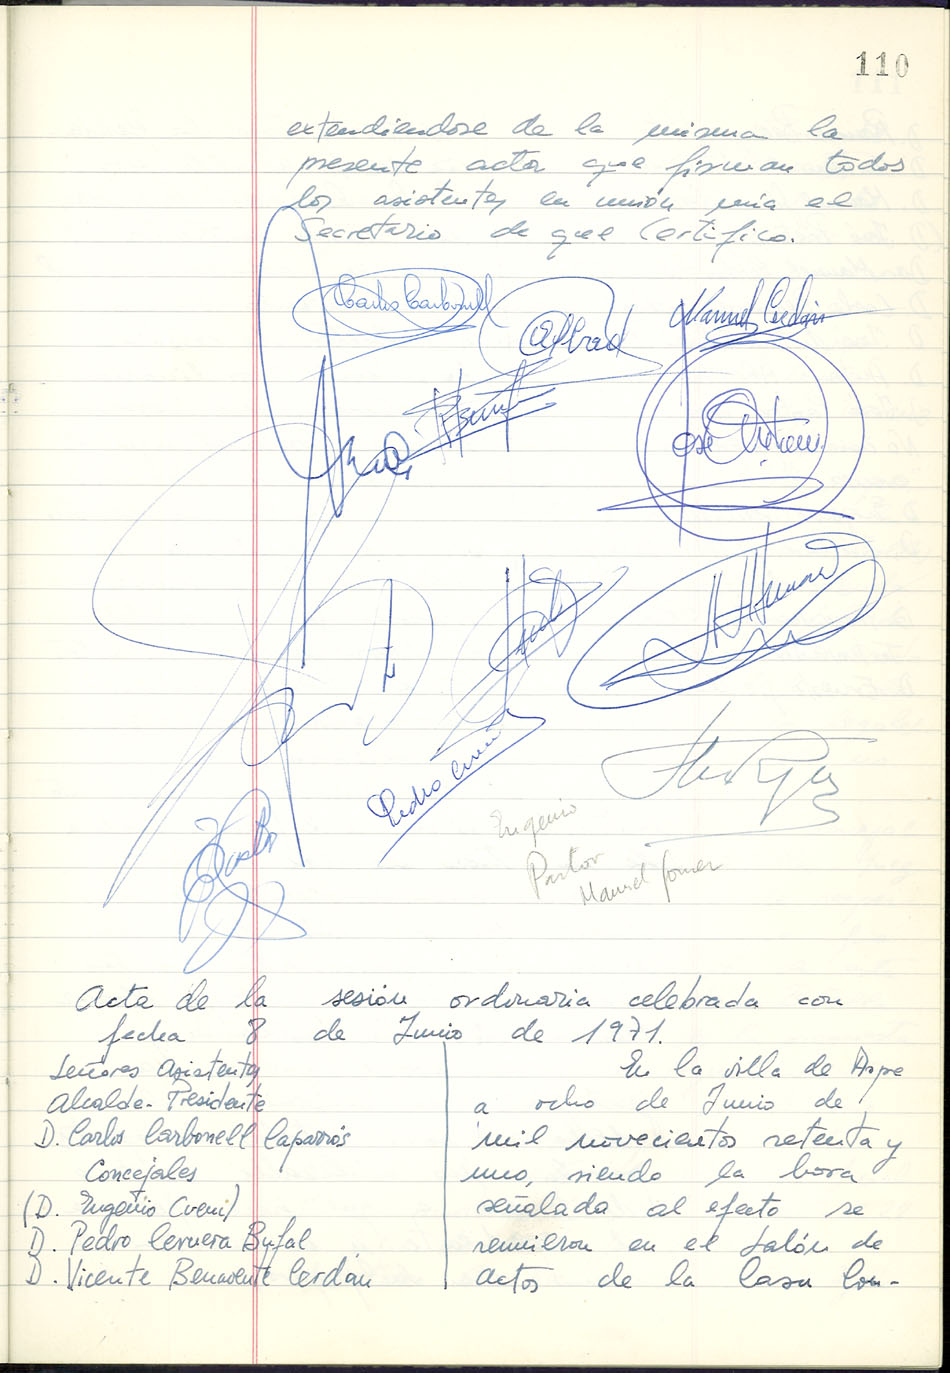 110
extendiendose de la misma la
presente acta que firman todos
los asistentes en unión mia el
Secretario de que Certifico.
Carlos Carbonell
Manuel Cerdán
José
Pedro
Eugenio
Pastor
Manuel Gomez
Acta de la sesión ordinaria celebrada con
fecha 8 de Junio de 1971.
Señores Asistentes
Alcalde-Presidente
D. Carlos Carbonell Caparrós
Concejales
(D. Eugenio Cremi)
D. Pedro Cervera Bufal
D. Vicente Benavente Cerdán
En la villa de Aspe
a ocho de Junio de
mil novecientos setenta y
uno, siendo la hora
señalada al efecto se
reunieron en el Salón de
actos de la Casa Con-